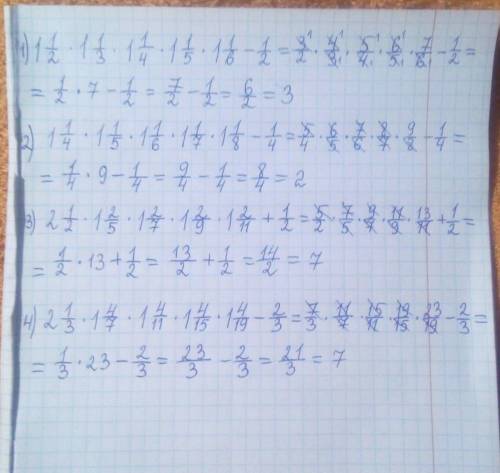 1) 1 1/2 · 1 1/3 · 1 1/4 · 1 1/5 · 1 1/6 - 1/2 = 3/2 · 4/3 · 5/4 · 6/5 · 7/6 - 1/2 =
= 1/2 · 7 - 1/2 = 7/2 - 1/2 = 6/2 = 3
2) 1 1/4 · 1 1/5 · 1 1/6 · 1 1/7 · 1 1/8 - 1/4 = 5/4 · 6/5 · 7/6 · 8/7 · 9/8 - 1/4 =
= 1/4 · 9 - 1/4 = 9/4 - 1/4 = 8/4 = 2
3) 2 1/2 · 1 2/5 · 1 2/7 · 1 2/9 · 1 2/11 + 1/2 = 5/2 · 7/5 · 9/7 · 11/9 · 13/11 + 1/2 =
= 1/2 · 13 + 1/2 = 13/2 + 1/2 = 14/2 = 7
4) 2 1/3 · 1 4/7 · 1 4/11 · 1 4/15 · 1 4/19 - 2/3 = 7/3 · 11/7 · 15/11 · 19/15 · 23/19 - 2/3 =
= 1/3 · 23 - 2/3 = 23/3 - 2/3 = 21/3 = 7